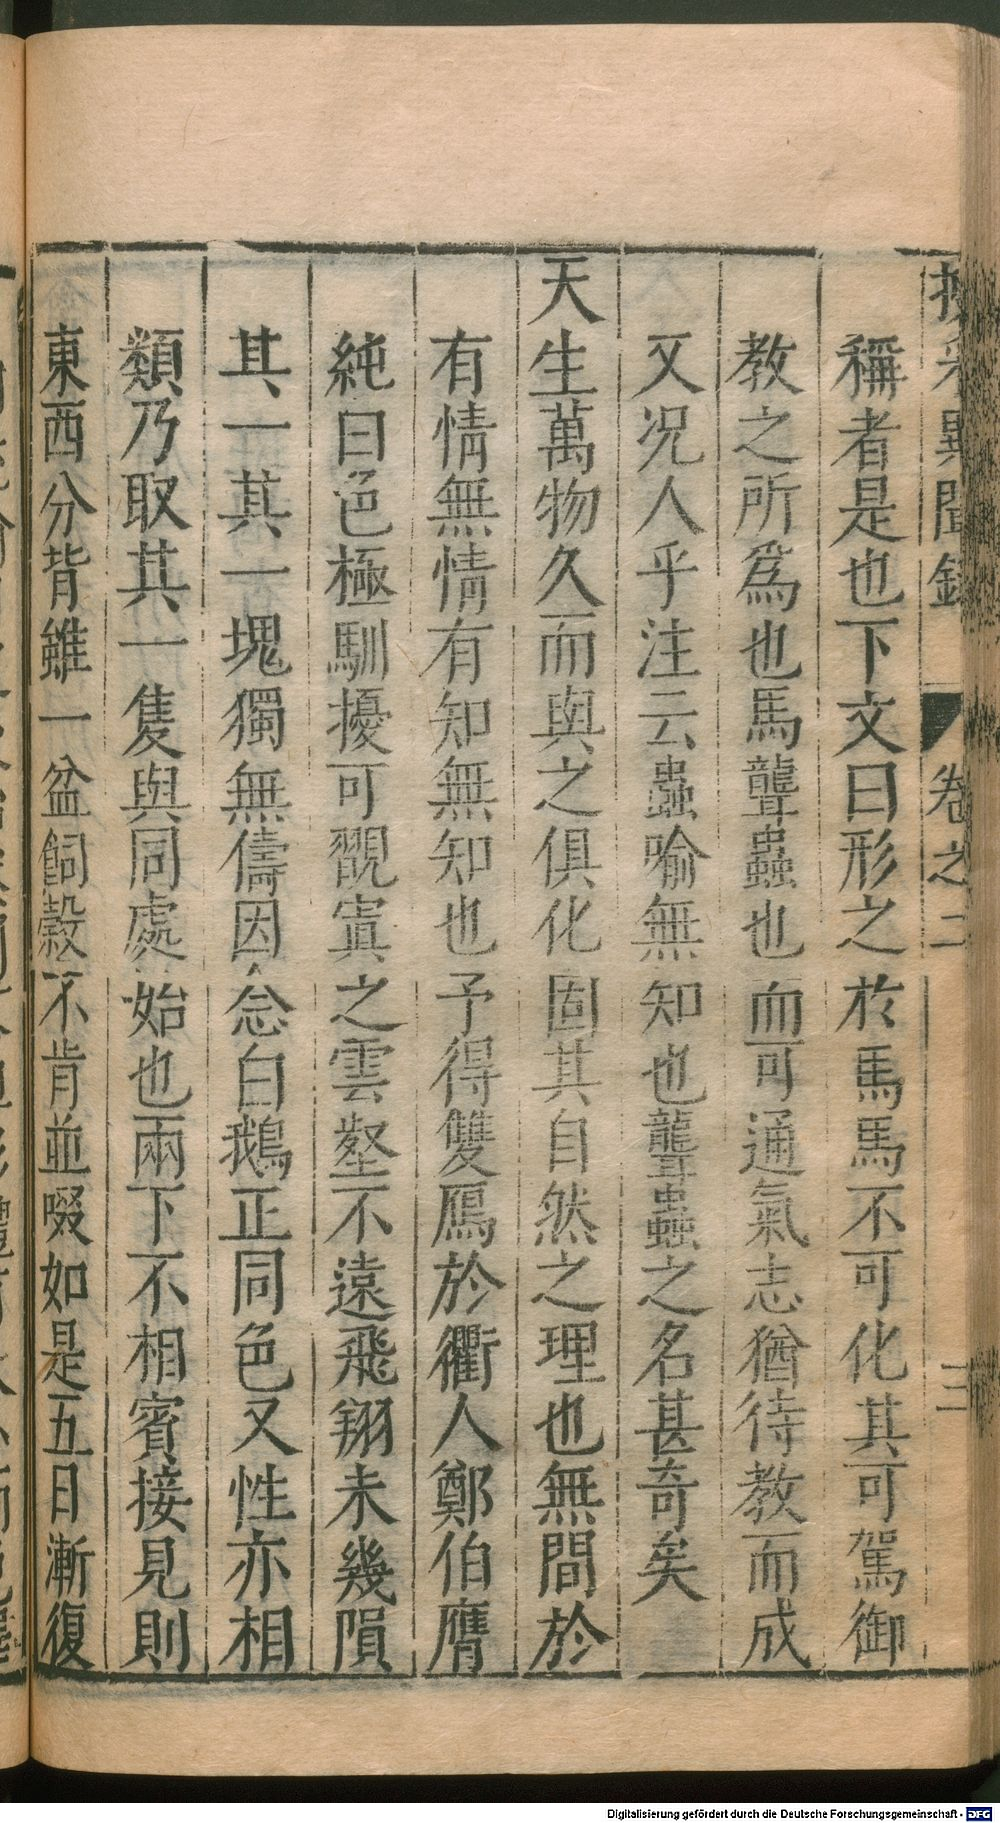 異聞錄 卷之二 三
稱者是也下文曰形之於馬馬不可化其可駕御
教之所爲也馬聾蟲也而可通氣志猶待教而成
又况人乎注云蟲喻無知也聾蟲之名甚奇矣
天生萬物久而與之俱化固其自然之理也無間於
有情無情有知無知也予得雙鴈於衢人鄭伯膺
純白色極馴擾可翫寘之雲壑不遠飛翔未幾隕
其一其一塊獨無儔因念白鵝正同色又性亦相
類乃取其一隻與同處始也兩下不相賓接見則
東西分背雖一盆飼穀不肯並啜如是五日漸復
Digitalisierung gefördert durch die Deutsche Forschungsgemeinschaft - DFG